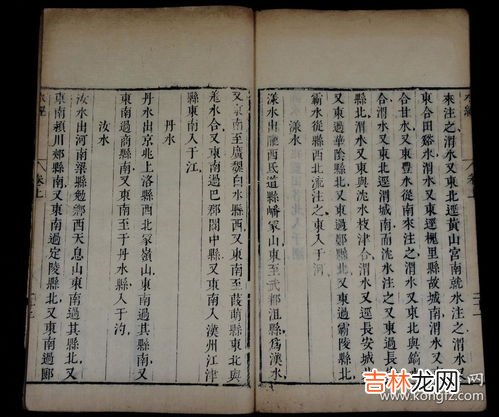 來注之渭水又東北逕黄山宮南就水注之渭水又
東合田谿水渭水又東逕槐里縣故城南渭水又東
合甘水又東豐水從南來注之渭水又東北與鎬水
合渭水又東北逕渭城南而沈水注之又東過長安
縣北渭水又東與沈水枝津合渭水又逕長安城北
又東過霸陵縣北
又東過華陰縣北
霸水從縣西北流注之東入于河
漾水
漾水出隴西氐道縣嶓冢山東至武都沮縣爲漢水
又東南至廣魏白水縣西又東南至葭萌縣東北與
羗水合又東南過巴郡閬中縣又東南入漢州江津
縣東南入于江
丹水
丹水出京兆上洛縣西北冢嶺山東南過其縣南又
東南過商縣南又東南至于丹水縣入于汋
汝水
汝水出河南梁縣勉鄉西天息山東南過其縣北又
東南潁川郟縣南又東南過定陵縣北又東南過郾
水經
卷上
水經
卷上
吉林龙网
www.kongfz.com